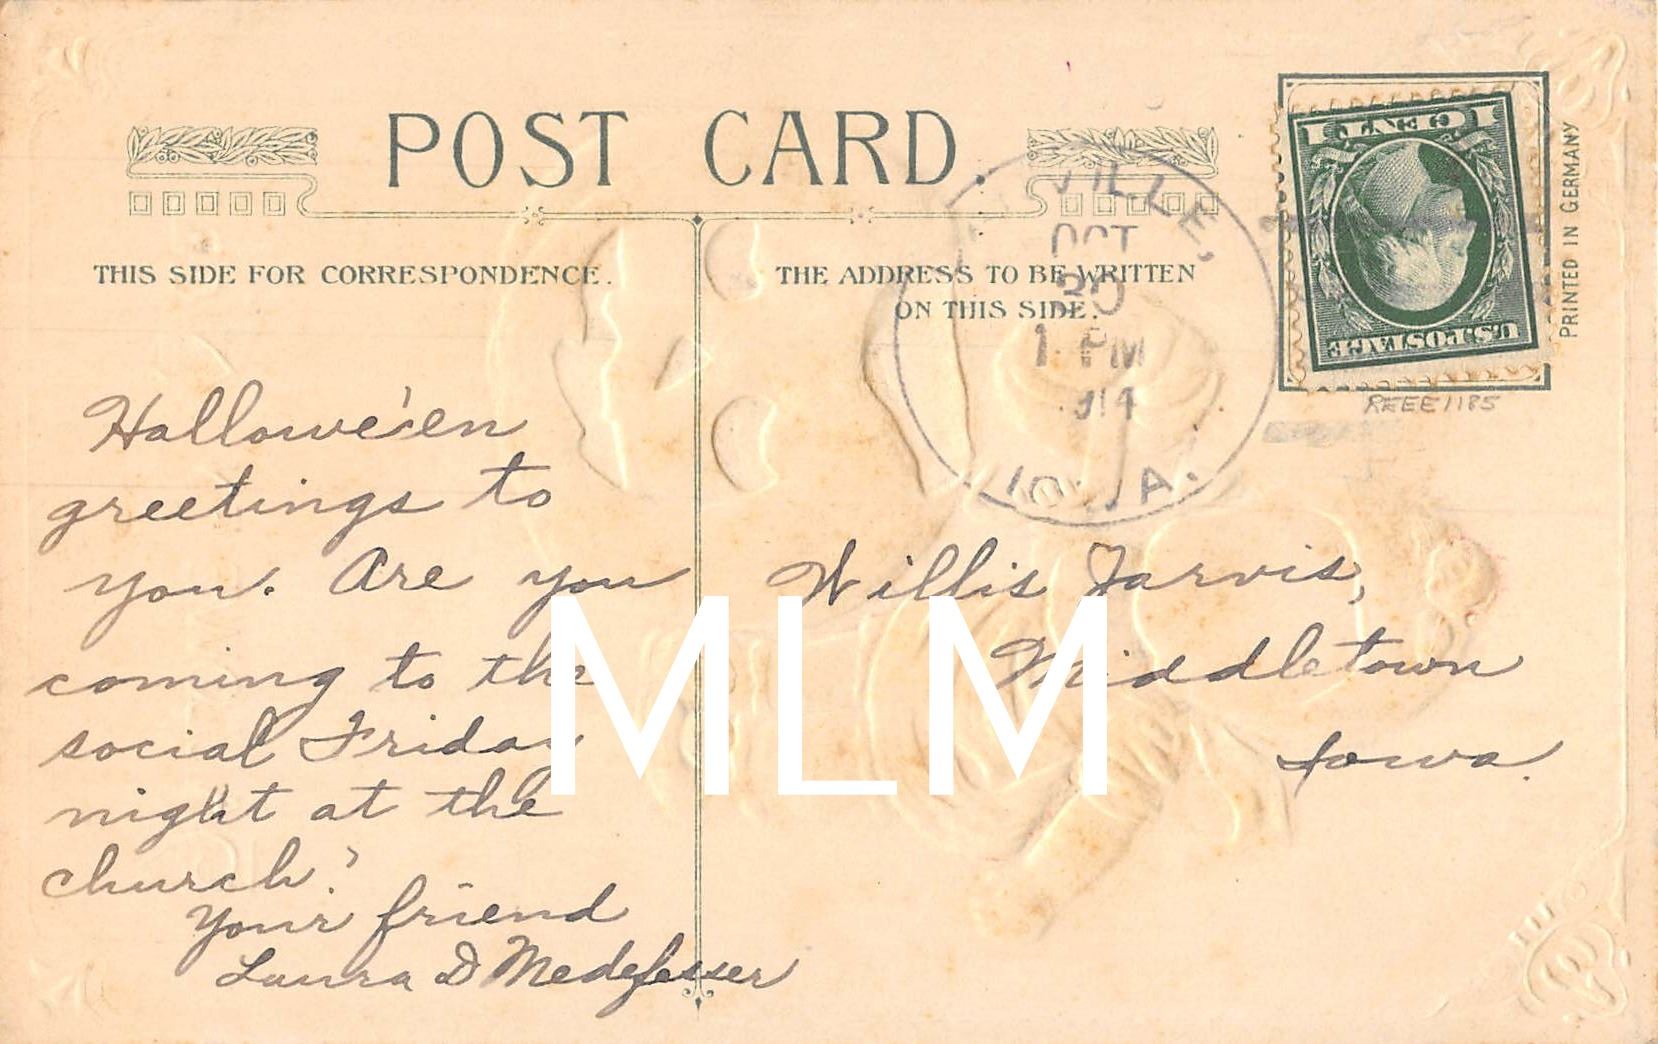 POST CARD.
THIS SIDE FOR CORRESPONDENCE.
THE ADDRESS TO BE WRITTEN
ON THIS SIDE.
VILLE,
OCT
30
1 PM
1914
IOWA.
1 CENT 1
U.S. POSTAGE
PRINTED IN GERMANY
REEE1185
Hallowe'en
greetings to
you. Are you
coming to the
social Friday
night at the
church?
Your friend
Laura D
Willis Jarvis,
Middletown
Iowa.
MLM